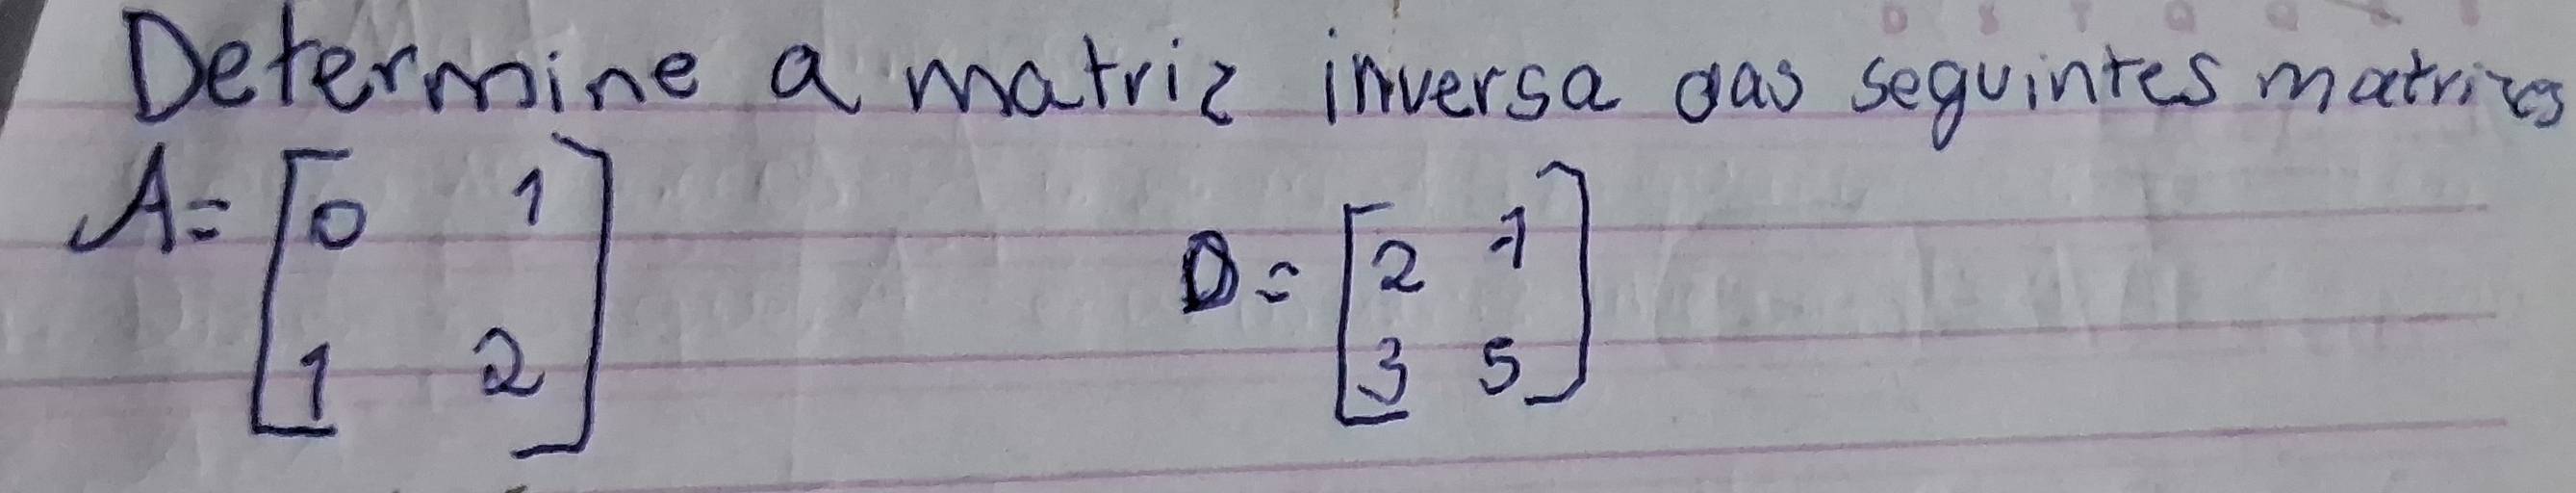 Determine a matriz inversa das seguintes matrizes
A= [0 1] D= [2 -1]
[1 2] [3 5]